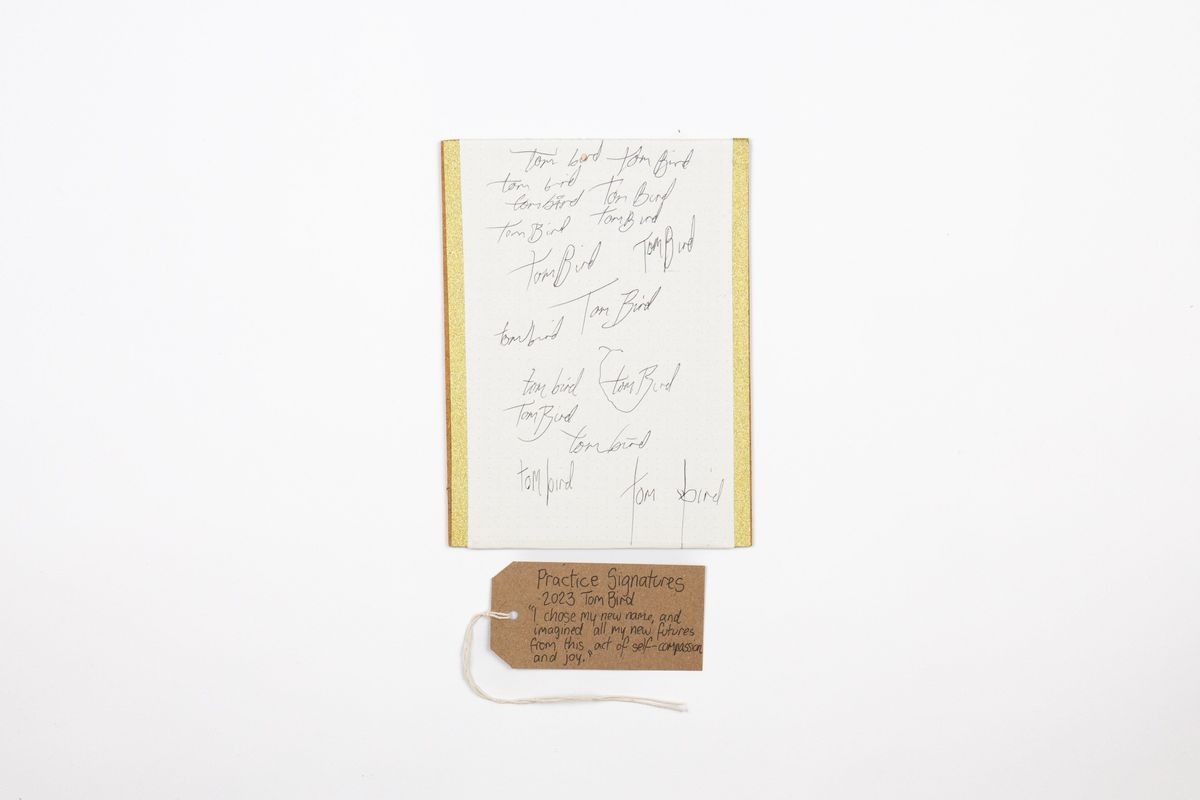 tom bird Tom Bird
tom bird
tom bird Tom Bird
Tom Bird Tom Bird
Tom Bird Tom Bird
Tom Bird
tom bird
tom bird Tom Bird
Tom Bird
tom bird
tom bird tom bird
Practice Signatures
2023 Tom Bird
"I chose my new name, and
imagined all my new futures
from this act of self-compassion
and joy."